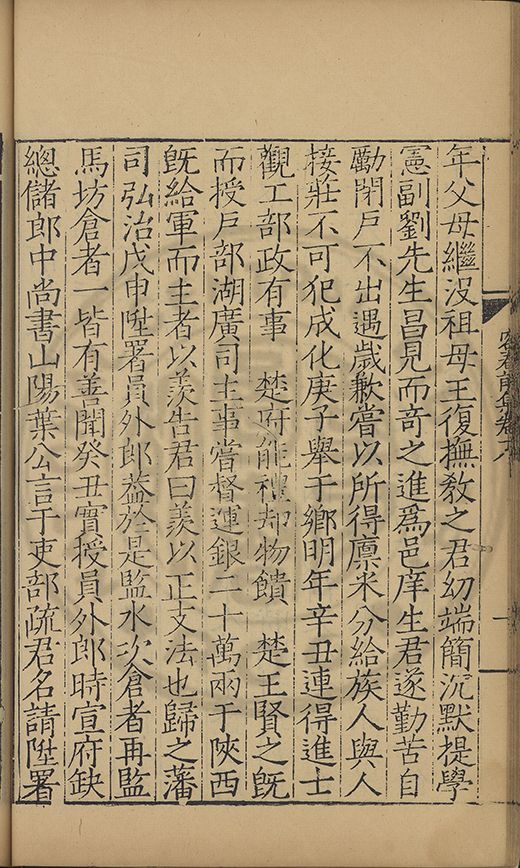 年父母繼没祖母王復撫敎之君幼端簡沉默提學
憲副劉先生昌見而竒之進爲邑庠生君遂勤苦自
勵閉戸不出遇歲歉嘗以所得廪米分給族人與人
接莊不可犯成化庚子舉于鄉明年辛丑連得進士
觀工部政有事 楚府能禮却物饋 楚王賢之旣
而授戸部湖廣司主事嘗督運銀二十萬兩于陜西
旣給軍而主者以羨告君曰羨以正支法也歸之藩
司弘治戊申陞署員外郎葢於是監水次倉者再監
馬坊倉者一皆有善聞癸丑實授員外郎時宣府缺
總儲郎中尚書山陽葉公言于吏部疏君名請陞署
容春前集卷十八
一